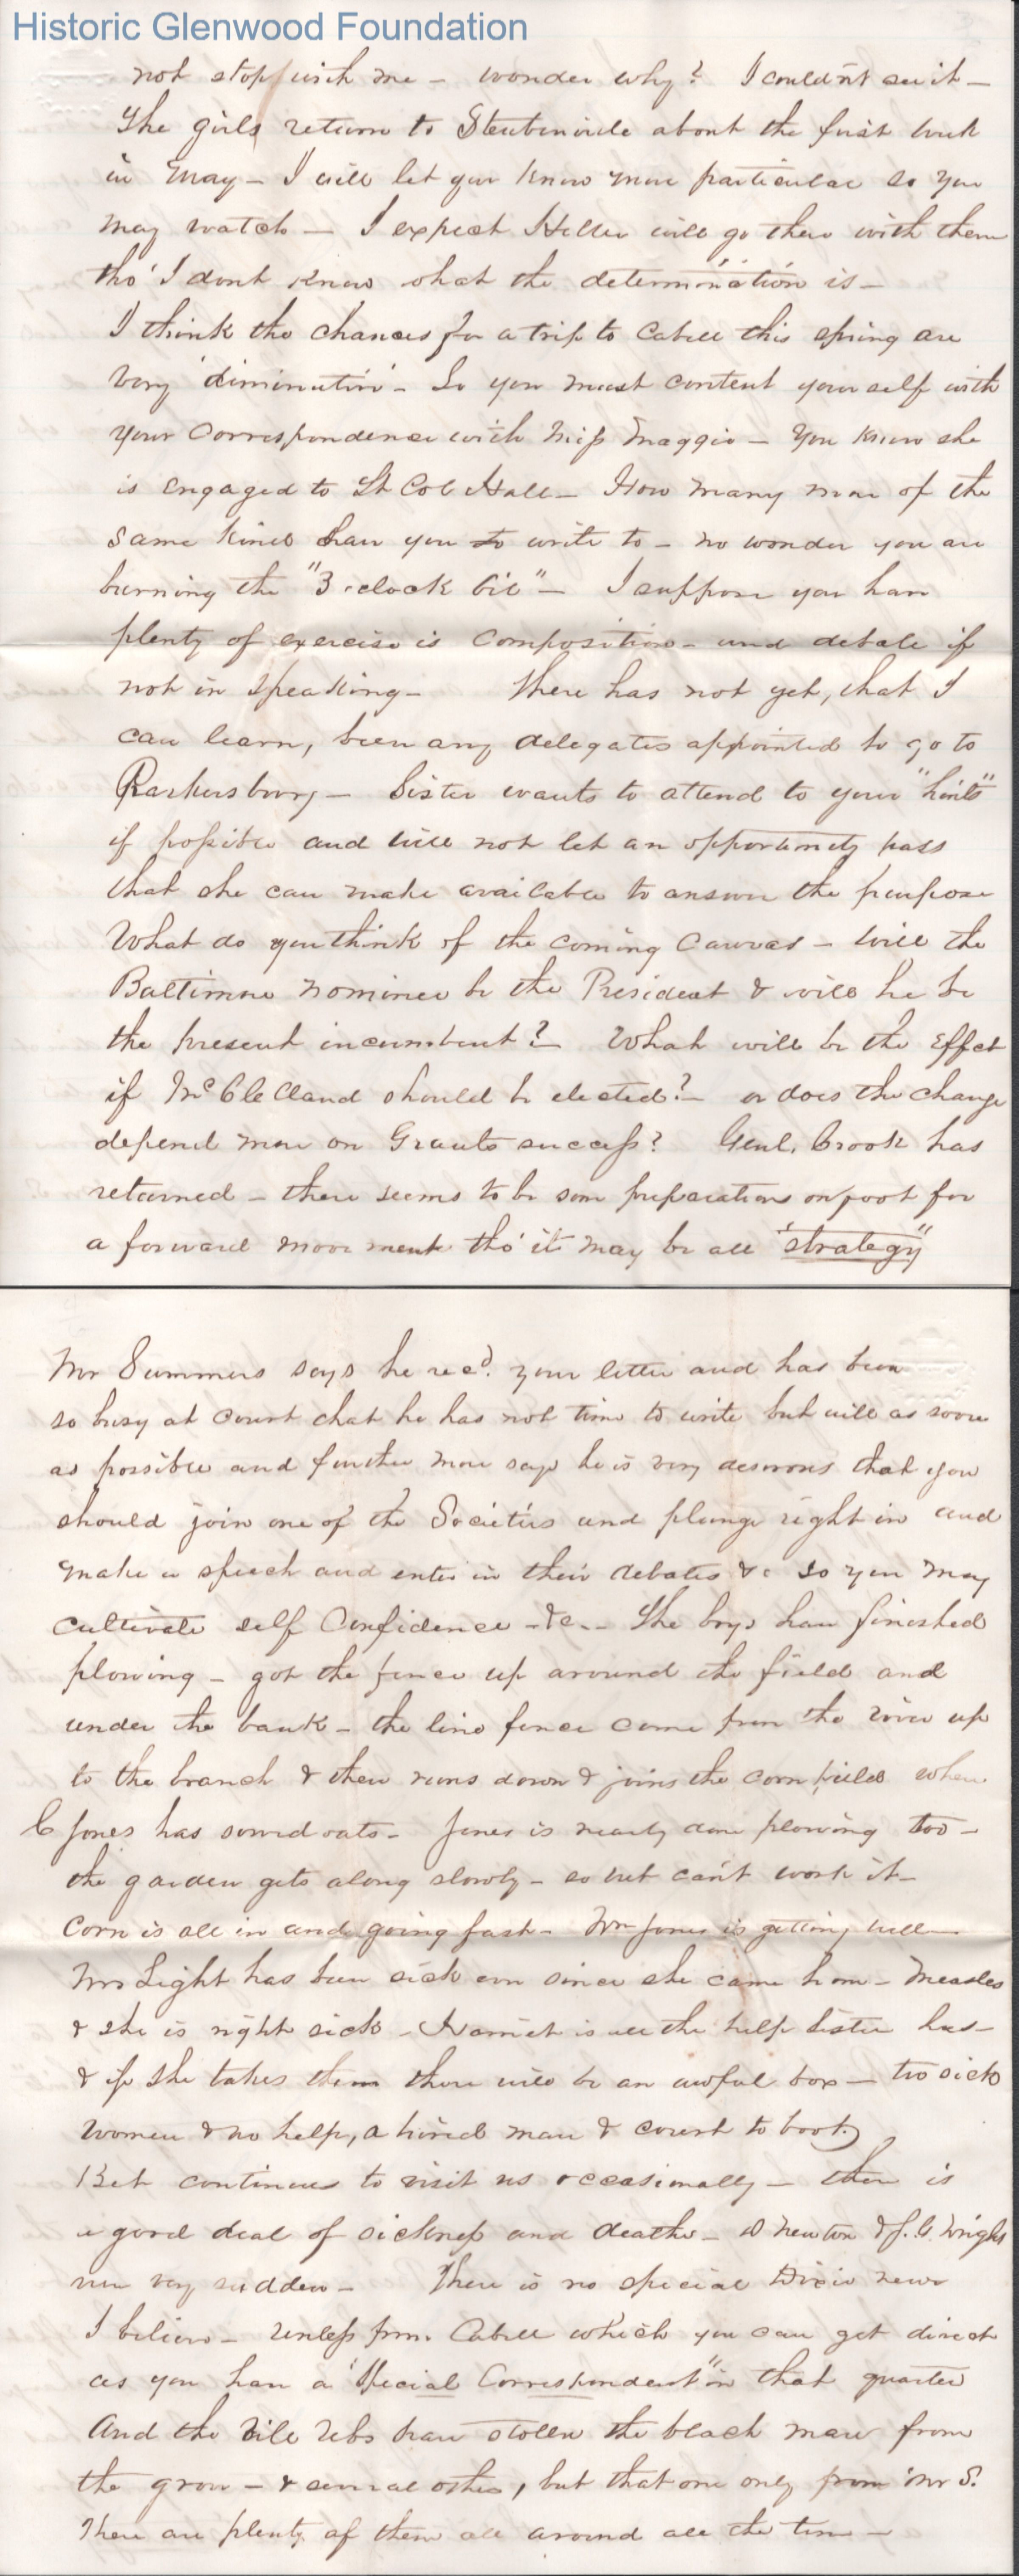 Historic Glenwood Foundation
not stop with me – wonder why? I couldn't see it –
The girls return to Steubenville about the first week
in May – I will let you know more particular so you
may watch – I expect Hellen will go there with them
tho' I dont know what the determination is –
I think the chances for a trip to Cabell this spring are
very 'diminutive' – So you must content yourself with
your correspondence with Miss Maggie – You know she
is engaged to Lt Col Hall – How many more of the
same kind have you to write to – no wonder you are
burning the "3 oclock oil" – I suppose you have
plenty of exercise is composition – and debate if
not in speaking – There has not yet, that I
can learn, been any delegates appointed to go to
Parkersburg – Sister wants to attend to your "hints"
if possible and will not let an opportunity pass
that she can make available to answer the purpose
What do you think of the coming canvas – will the
Baltimore nominee be the President & will he be
the present incumbent? What will be the Effect
if McClelland should be elected? – or does the change
depend more on Grants success? Genl. Crook has
returned – there seems to be some preparations on foot for
a forward moovment tho' it may be all "strategy"
Mr Summers says he recd. your letter and has been
so busy at court that he has not time to write but will as soon
as possible and further more says he is very desirous that you
should join one of the Societies and plunge right in and
make a speech and enter in their debates &c so you may
cultivate self Confidence – &c – The boys have finished
plowing – got the fence up around the field and
under the bank – the line fence come from the river up
to the branch & then runs down & joins the corn field where
C Jones has sowed oats – Jones is nearly done plowing too –
the garden gets along slowly – so wet can't work it –
Corn is all in and going fast – Wm Jones is getting well –
Mrs Light has been sick ever since she came home – Measles
& she is right sick – Harriet is all the help sister has –
& if she takes them there will be an awful box – two sick
women & no help, a hired man & court to boot.
Bet continues to visit us occasionally – there is
a good deal of sickness and deaths – D Newton & J. G. Wright
very sudden – There is no special Dixie news
I believe – Unless from Cabell which you can get direct
as you have a "Special Correspondent" in that quarter
And the vile rebs have stolen the black mare from
the grove – & several others, but that one only from Mr S.
There are plenty of them all around all the time –